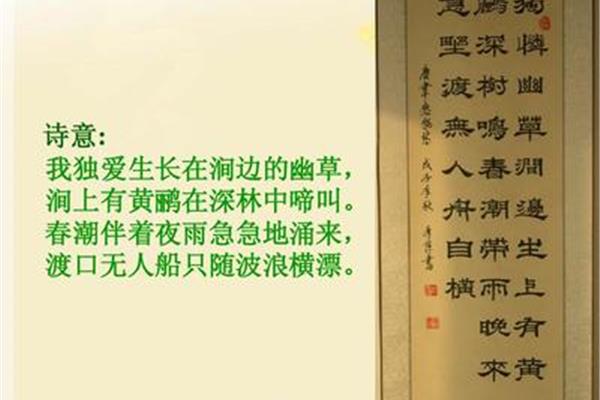 诗意：
我独爱生长在涧边的幽草，
涧上有黄鹂在深林中啼叫。
春潮伴着夜雨急急地涌来，
渡口无人船只随波浪横漂。
獨憐幽草澗邊生上有黃
鸝深樹鳴春潮帶雨晚來
急野渡無人舟自橫
唐韋應物詩 戊子年秋